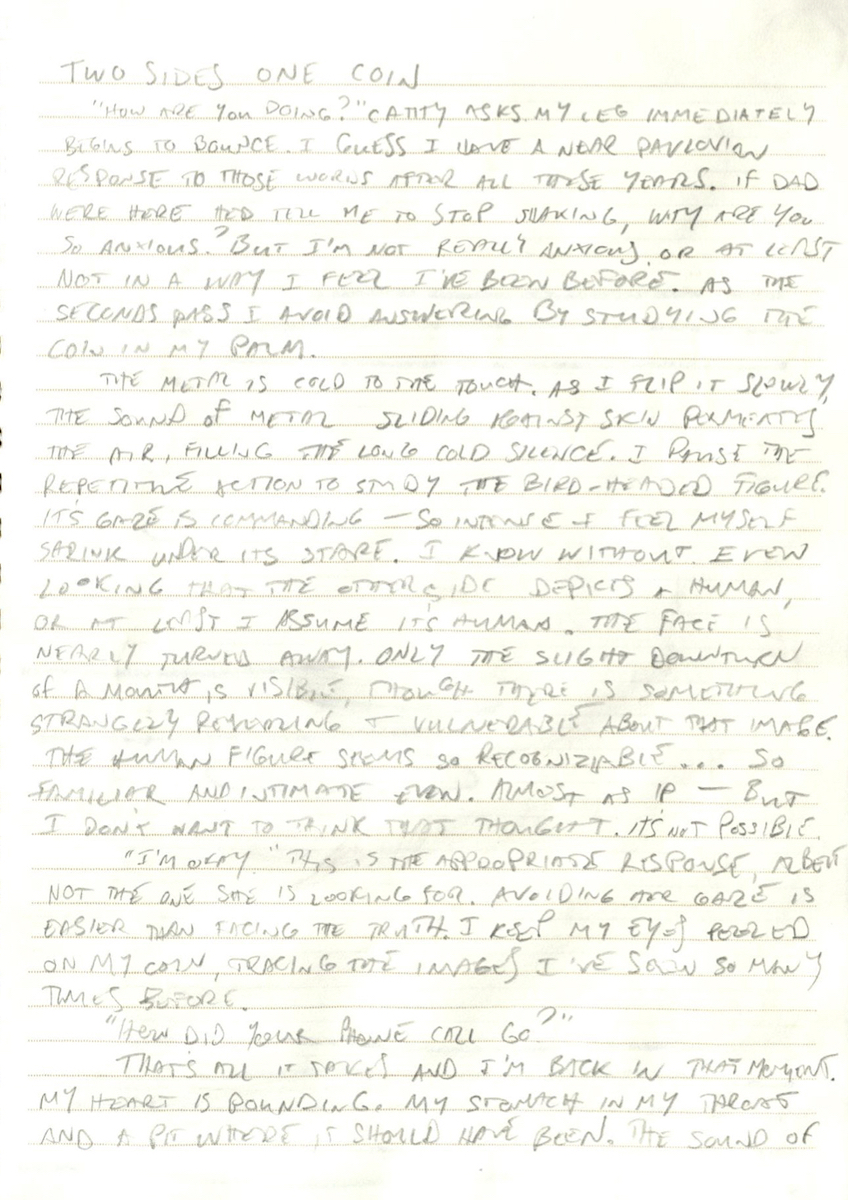 TWO SIDES ONE COIN
"HOW ARE YOU DOING?" CATHY ASKS. MY LEG IMMEDIATELY
BEGINS TO BOUNCE. I GUESS I HAVE A NEAR PAVLOVIAN
RESPONSE TO THOSE WORDS AFTER ALL THESE YEARS. IF DAD
WERE HERE HED TELL ME TO STOP SHAKING, WHY ARE YOU
SO ANXIOUS? BUT I'M NOT REALLY ANXIOUS, OR AT LEAST
NOT IN A WAY I FEEL I'VE BEEN BEFORE. AS THE
SECONDS PASS I AVOID ANSWERING BY STUDYING THE
COIN IN MY PALM.
THE METAL IS COLD TO THE TOUCH. AS I FLIP IT SLOWLY,
THE SOUND OF METAL SLIDING AGAINST SKIN PERMEATES
THE AIR, FILLING THE LONG COLD SILENCE. I PAUSE THE
REPETITIVE ACTION TO STUDY THE BIRD-HEADED FIGURE.
IT'S GAZE IS COMMANDING — SO INTENSE I FEEL MYSELF
SHRINK UNDER ITS STARE. I KNOW WITHOUT EVEN
LOOKING THAT THE OTHER SIDE DEPICTS A HUMAN,
OR AT LEAST I ASSUME IT'S HUMAN. THE FACE IS
NEARLY TURNED AWAY. ONLY THE SLIGHT DOWNTURN
OF A MOUTH IS VISIBLE, THOUGH THERE IS SOMETHING
STRANGELY REVEALING + VULNERABLE ABOUT THAT IMAGE.
THE HUMAN FIGURE SEEMS SO RECOGNIZABLE... SO
FAMILIAR AND INTIMATE EVEN. ALMOST AS IF — BUT
I DON'T WANT TO THINK THAT THOUGHT. IT'S NOT POSSIBLE.
"I'M OKAY." THIS IS THE APPROPRIATE RESPONSE, ALBEIT
NOT THE ONE SHE IS LOOKING FOR. AVOIDING HER GAZE IS
EASIER THAN FACING THE TRUTH. I KEEP MY EYES PEELED
ON MY COIN, TRACING THE IMAGES I'VE SEEN SO MANY
TIMES BEFORE.
"HOW DID YOUR PHONE CALL GO?"
THAT'S ALL IT TAKES AND I'M BACK IN THAT MOMENT.
MY HEART IS POUNDING. MY STOMACH IN MY THROAT
AND A PIT WHERE IT SHOULD HAVE BEEN. THE SOUND OF